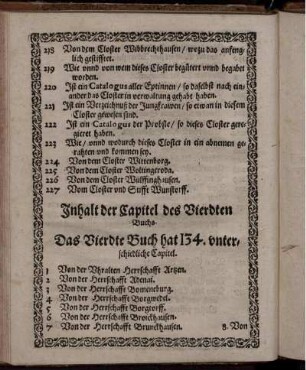 218 Von dem Closter Wibbrechtshausen / wozu das anfeng-
lich gestifftet.
219 Wie vnnd von wem dieses Closter begütert vnnd begabet
worden.
220 Ist ein Catalogus aller Eptinnen / so daselbst nach ein-
ander das Closter in verwaltung gehabt haben.
221 Ist ein Verzeichnuß der Jungfrawen / so etwan in diesem
Closter gewesen sind.
222 Ist ein Catalogus der Probste / so dieses Closter gere-
gieret haben.
223 Wie / vnnd wodurch dieses Closter in ein abnemen ge-
rahten vnd kommen sey.
224 Von dem Closter Wittenborg.
225 Von dem Closter Woltingeroda.
226 Von dem Closter Wülffinghausen.
227 Vom Closter vnd Stifft Wunstorff.
Inhalt der Capitel des Vierdten
Buchs.
Das Vierdte Buch hat 154. vnter-
schiedliche Capitel.
1 Von der Vhralten Herrschafft Artzen.
2 Von der Herrschafft Adenai.
3 Von der Herrschafft Bomeneburg.
4 Von der Herrschafft Borgwedel.
5 Von der Herrschafft Borgtorff.
6 Von der Herrschafft Brockhausen.
7 Von der Herrschafft Brunckhausen.
8. Von